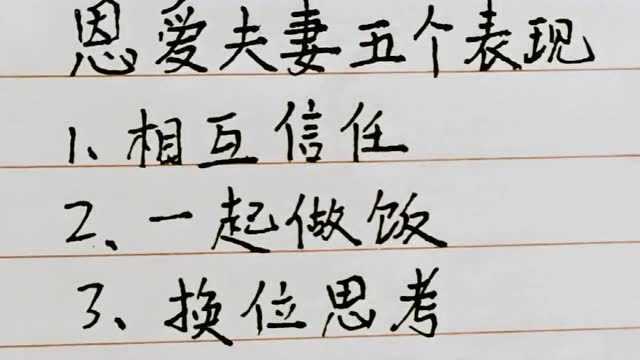 恩爱夫妻五个表现
1、相互信任
2、一起做饭
3、换位思考